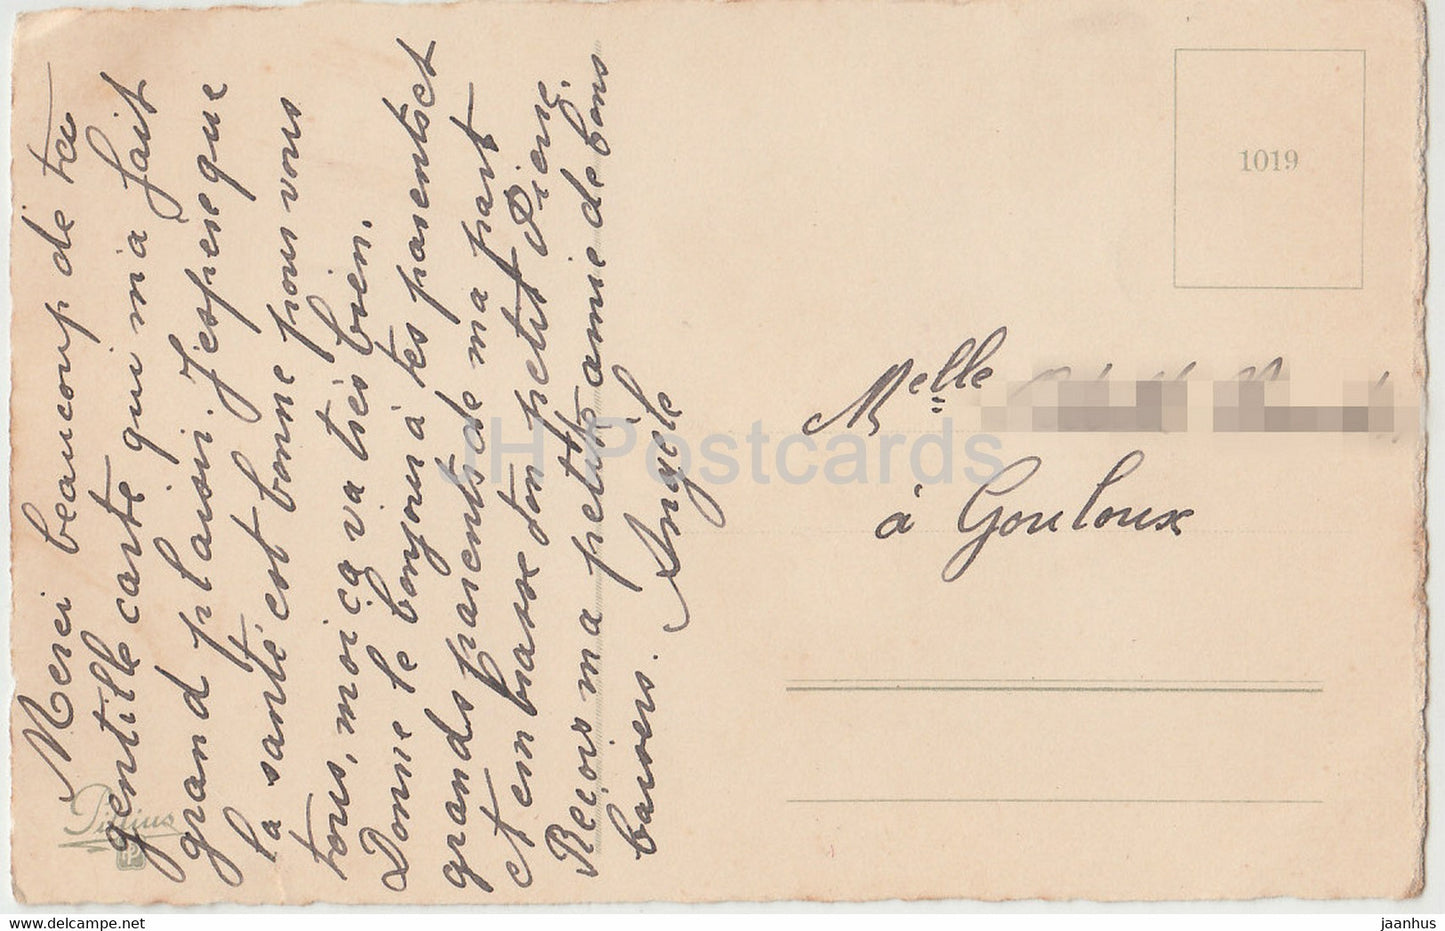 Merci beaucoup de ta
gentille carte qui m'a fait
grand plaisir. J'espère que
la santé est bonne pour vous
tous, moi ça va très bien.
Donne le bonjour à tes parents et
grands parents de ma part
et embrasse ton petit Pierre.
Reçois ma petite amie de bons
baisers. Angèle
1019
Melle
à Gouloux
JH Postcards
delcampe.net
jaanhus